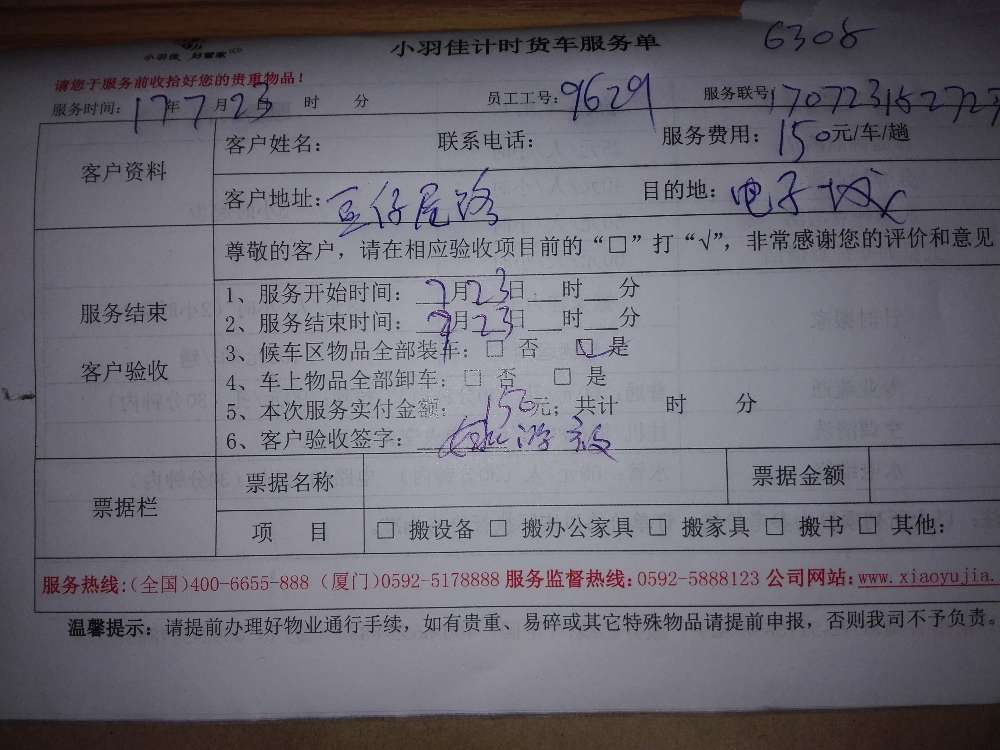 小羽佳 好管家
小羽佳计时货车服务单
6308
请您于服务前收拾好您的贵重物品！
服务时间：17年7月23日 时 分 员工工号：9629 服务联号170723152727
客户资料
客户姓名： 联系电话： 服务费用：150元/车/趟
客户地址：豆仔尾路 目的地：电子城
尊敬的客户，请在相应验收项目前的“□”打“√”，非常感谢您的评价和意见
服务结束
客户验收
1、服务开始时间：7月23日___时___分
2、服务结束时间：7月23日___时___分
3、候车区物品全部装车：□ 否 ☑ 是
4、车上物品全部卸车：□ 否 □ 是
5、本次服务实付金额：150元；共计 时 分
6、客户验收签字：
票据栏
票据名称 票据金额
项 目 □ 搬设备 □ 搬办公家具 □ 搬家具 □ 搬书 □ 其他：
服务热线：(全国)400-6655-888 (厦门)0592-5178888 服务监督热线：0592-5888123 公司网站：www.xiaoyujia.
温馨提示：请提前办理好物业通行手续，如有贵重、易碎或其它特殊物品请提前申报，否则我司不予负责。